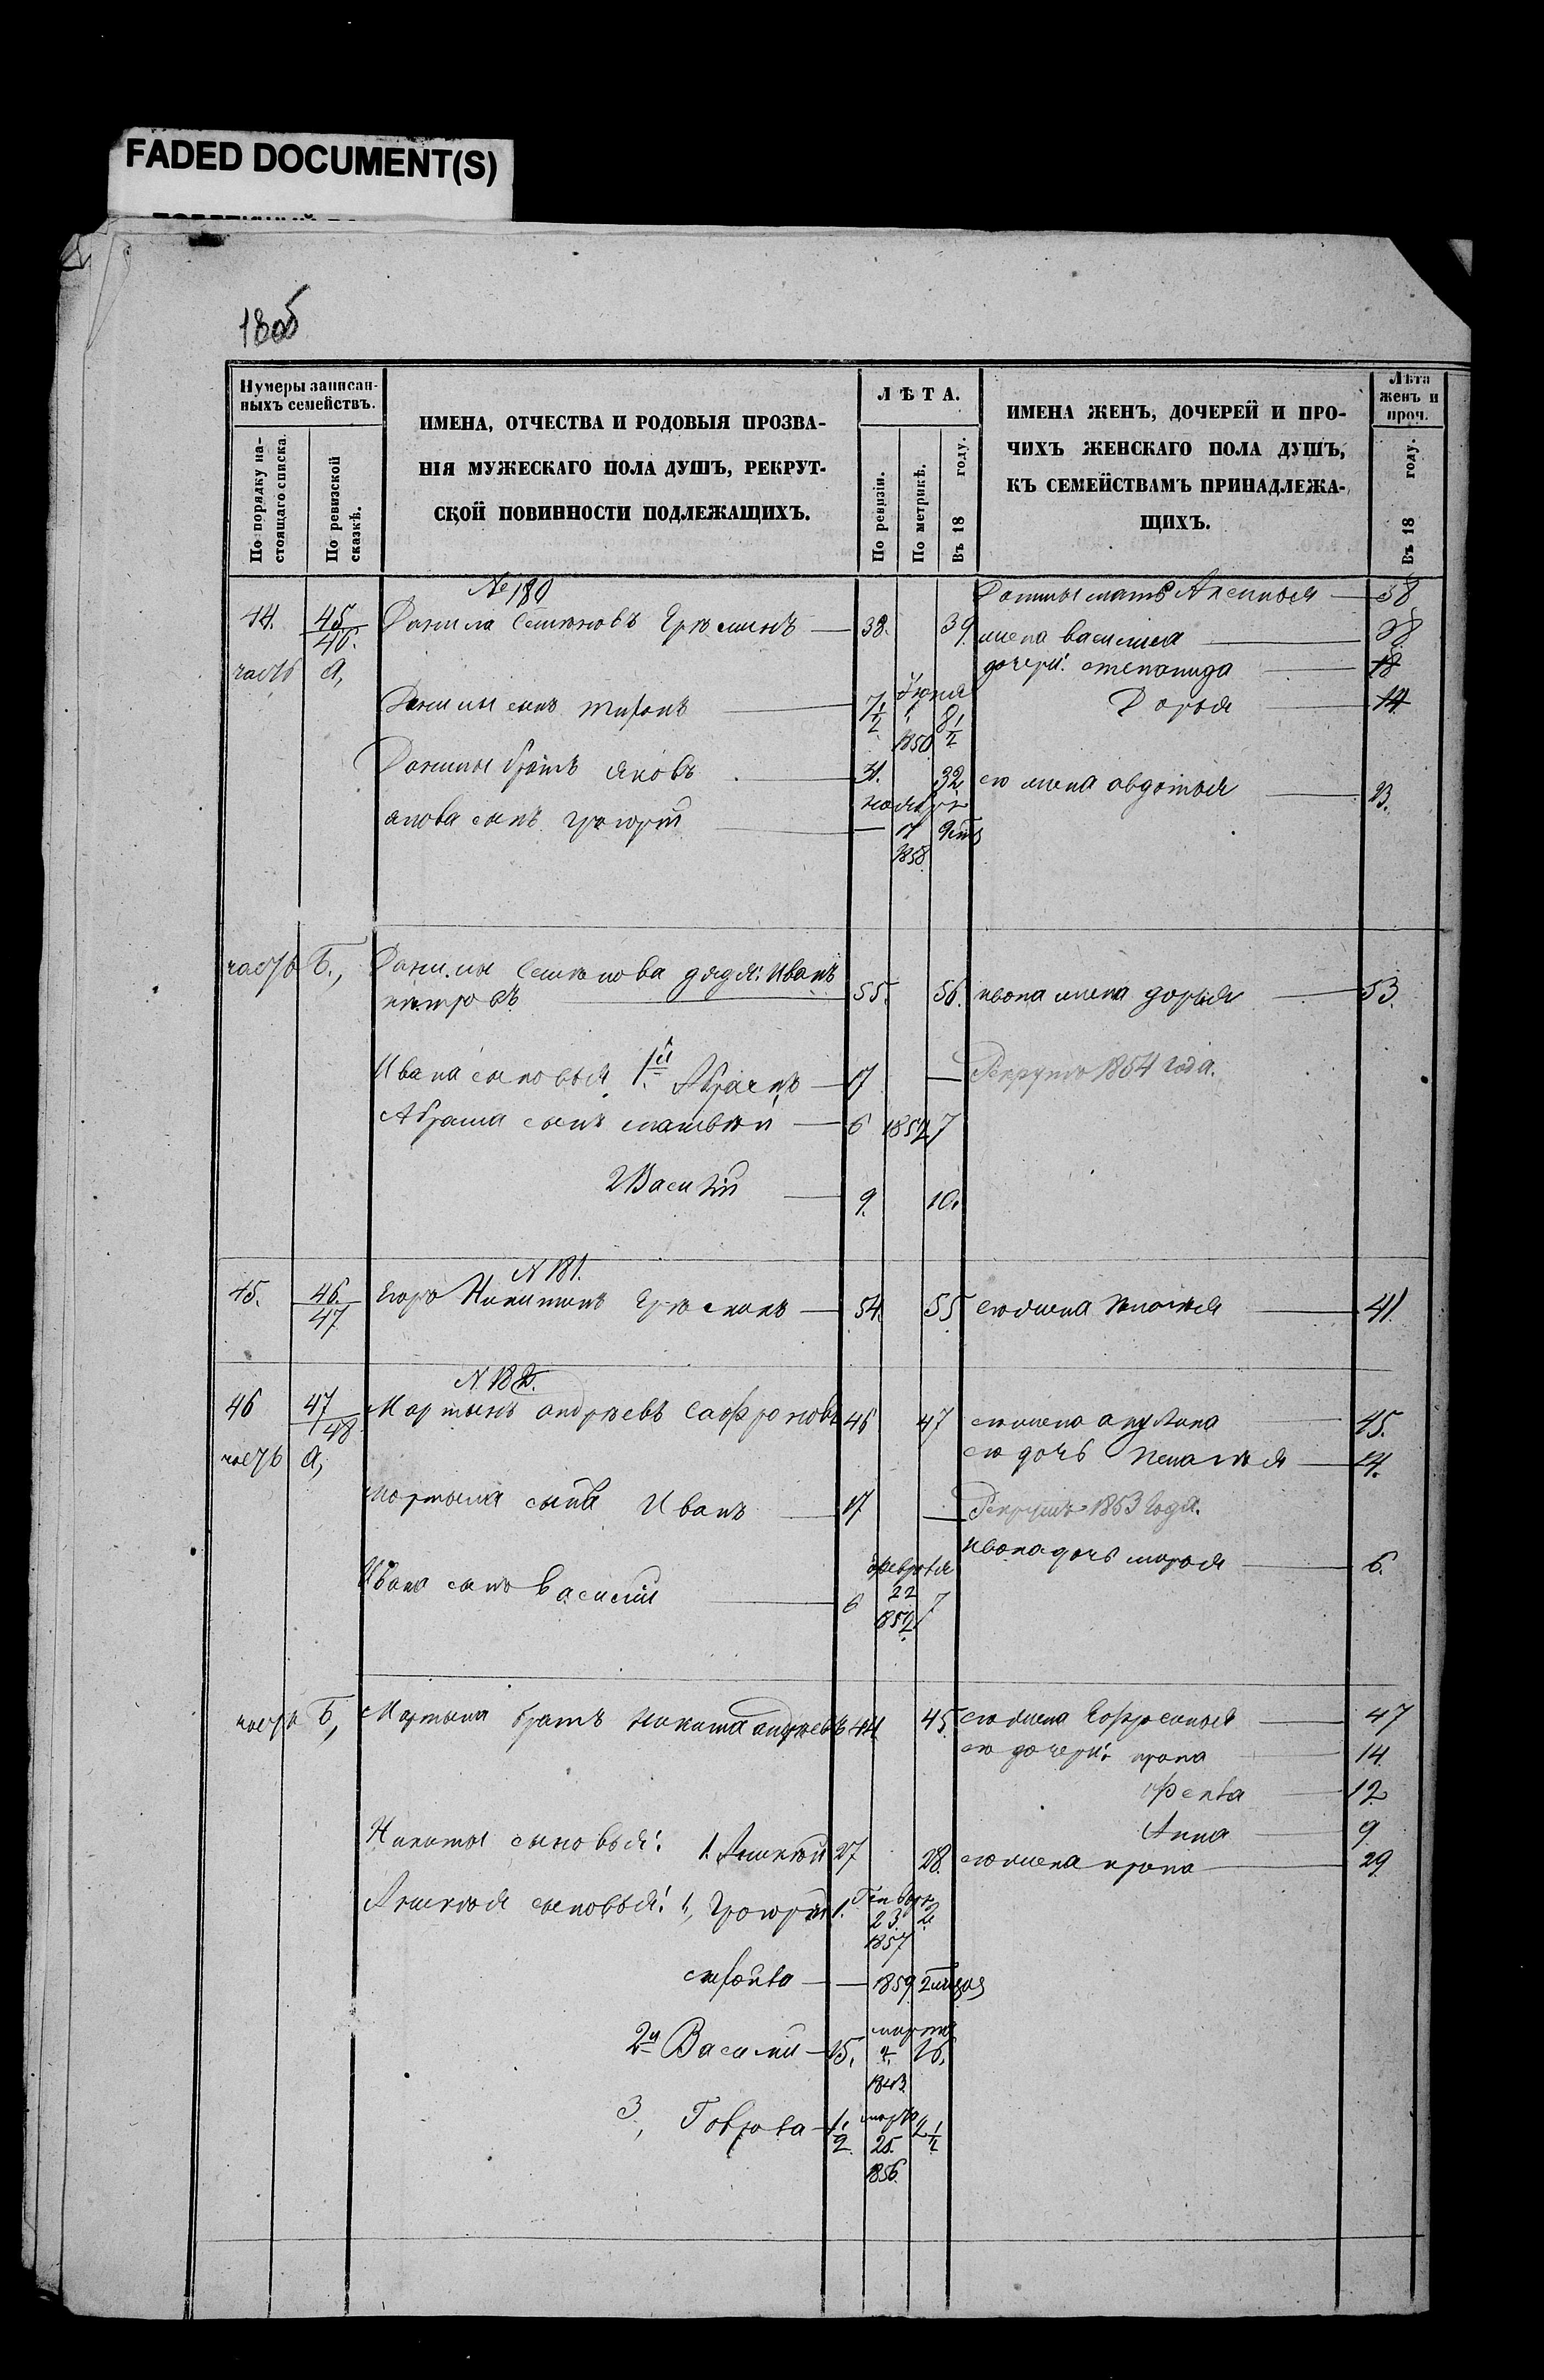 FADED DOCUMENT(S)
180б
Нумеры записан-
ныхъ семействъ.
По порядку на-
стоящаго списка.
По ревизской
сказкѣ.
ИМЕНА, ОТЧЕСТВА И РОДОВЫЯ ПРОЗВА-
НІЯ МУЖЕСКАГО ПОЛА ДУШЪ, РЕКРУТ-
СКОЙ ПОВИННОСТИ ПОДЛЕЖАЩИХЪ.
ЛѢТА.
По ревизіи.
По метрикѣ.
Въ 18 году.
ИМЕНА ЖЕНЪ, ДОЧЕРЕЙ И ПРО-
ЧИХЪ ЖЕНСКАГО ПОЛА ДУШЪ,
КЪ СЕМЕЙСТВАМЪ ПРИНАДЛЕЖА-
ЩИХЪ.
Лѣта
женъ и
проч.
Въ 18 году.
№ 180
Данилы мать Аксинья 58
44. 45/46. Данила 38. 39. жена василиса 38
часть А, дочери: степанида 18
Данилы сынъ тифонъ 7 1/2 1850 8 1/2 Дарья 14
Данилы братъ Яковъ 31. 32. его жена авдотья 23.
акова сынъ григорій — ноября 17 1858
часть Б., Данилы дядя: Иванъ
петровъ 55. 56. ивана жена дарья 53.
Ивана сыновья 1й Абрамъ 17 — Рекрутъ 1854 года.
Абрама сынъ матвѣй 6 1852 7
2 Василій 9. 10.
№ 181.
45. 46./47 Егоръ Никитинъ 54. 55 его жена 41.
№ 182.
46 47/48 Мартынъ андрѣевъ Сафроновъ 46 47 его жена акулина 45.
часть А, его дочь 14.
мартына сынъ Иванъ 17 — Рекрутъ 1853 года.
Ивана дочь марья 6.
Ивана сынъ василій 6 февраля 22 1852 7
часть Б, Мартына братъ никита андрѣевъ 44 45. его жена Ефросинья 47
его дочери: ирина 14.
Фекла 12
Анна 9
Никиты сыновья: 1. Алексѣй 27 28. его жена ирина 29
Алексѣя сыновья: 1, григорій 1. Генваря 23. 1857 2.
— 1859 2 месяца
2й Василій 15. марта 7. 1843 16.
3, Гаврила 1 1/2 марта 25. 1856. 2 1/2